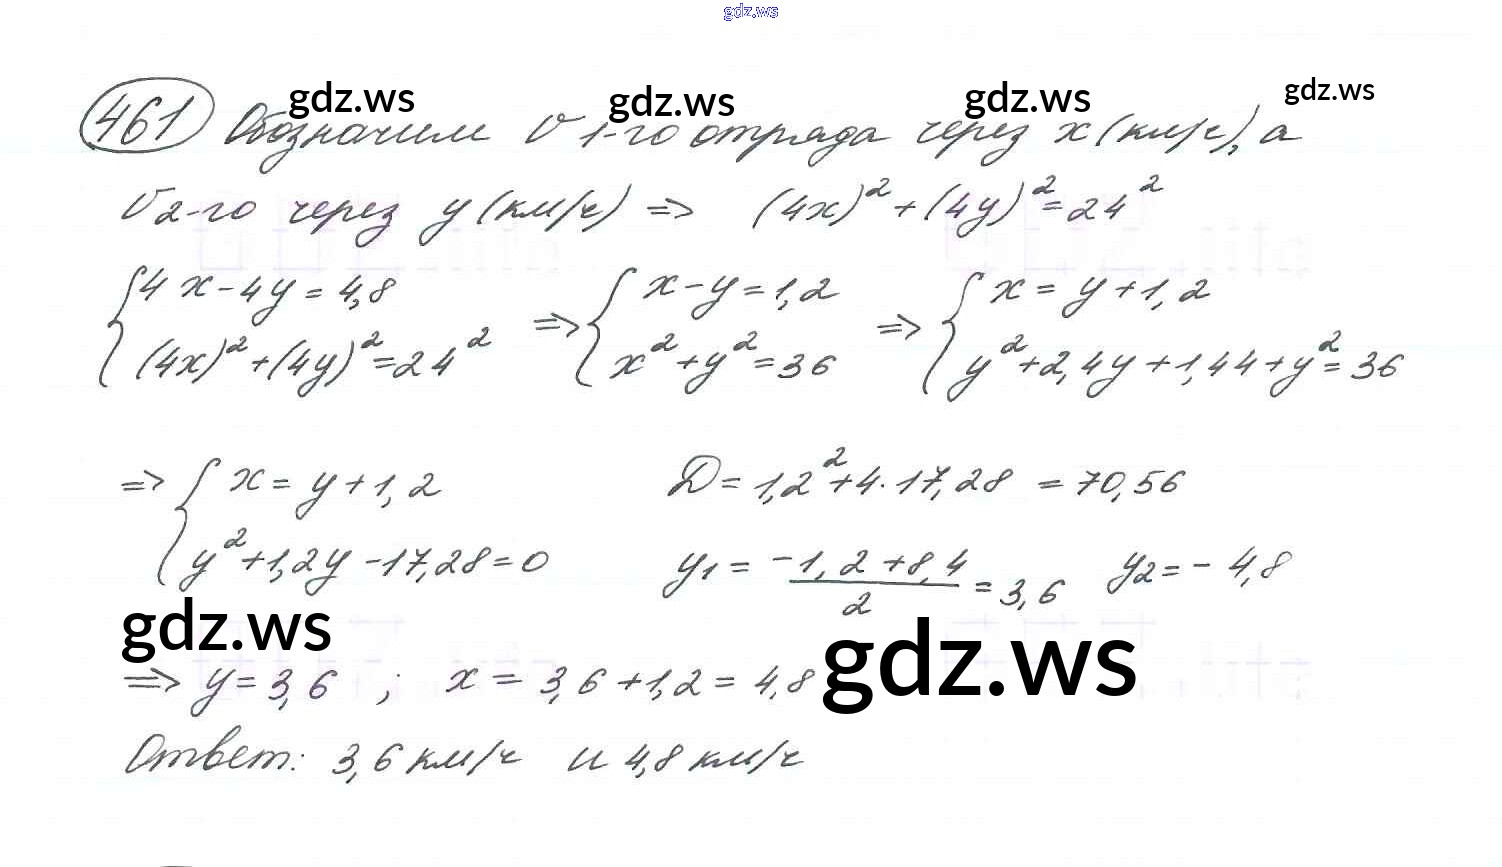 gdz.ws
gdz.ws gdz.ws gdz.ws gdz.ws
461 Обозначим V 1-го отряда через x (км/ч), а
V 2-го через y (км/ч) => (4x)² + (4y)² = 24²
{ 4x - 4y = 4,8 => { x - y = 1,2 => { x = y + 1,2
(4x)² + (4y)² = 24² x² + y² = 36 y² + 2,4y + 1,44 + y² = 36
=> { x = y + 1,2 D = 1,2² + 4 · 17,28 = 70,56
y² + 1,2y - 17,28 = 0 y₁ = (-1,2 + 8,4)/2 = 3,6 y₂ = - 4,8
gdz.ws gdz.ws
=> y = 3,6 ; x = 3,6 + 1,2 = 4,8
Ответ: 3,6 км/ч и 4,8 км/ч